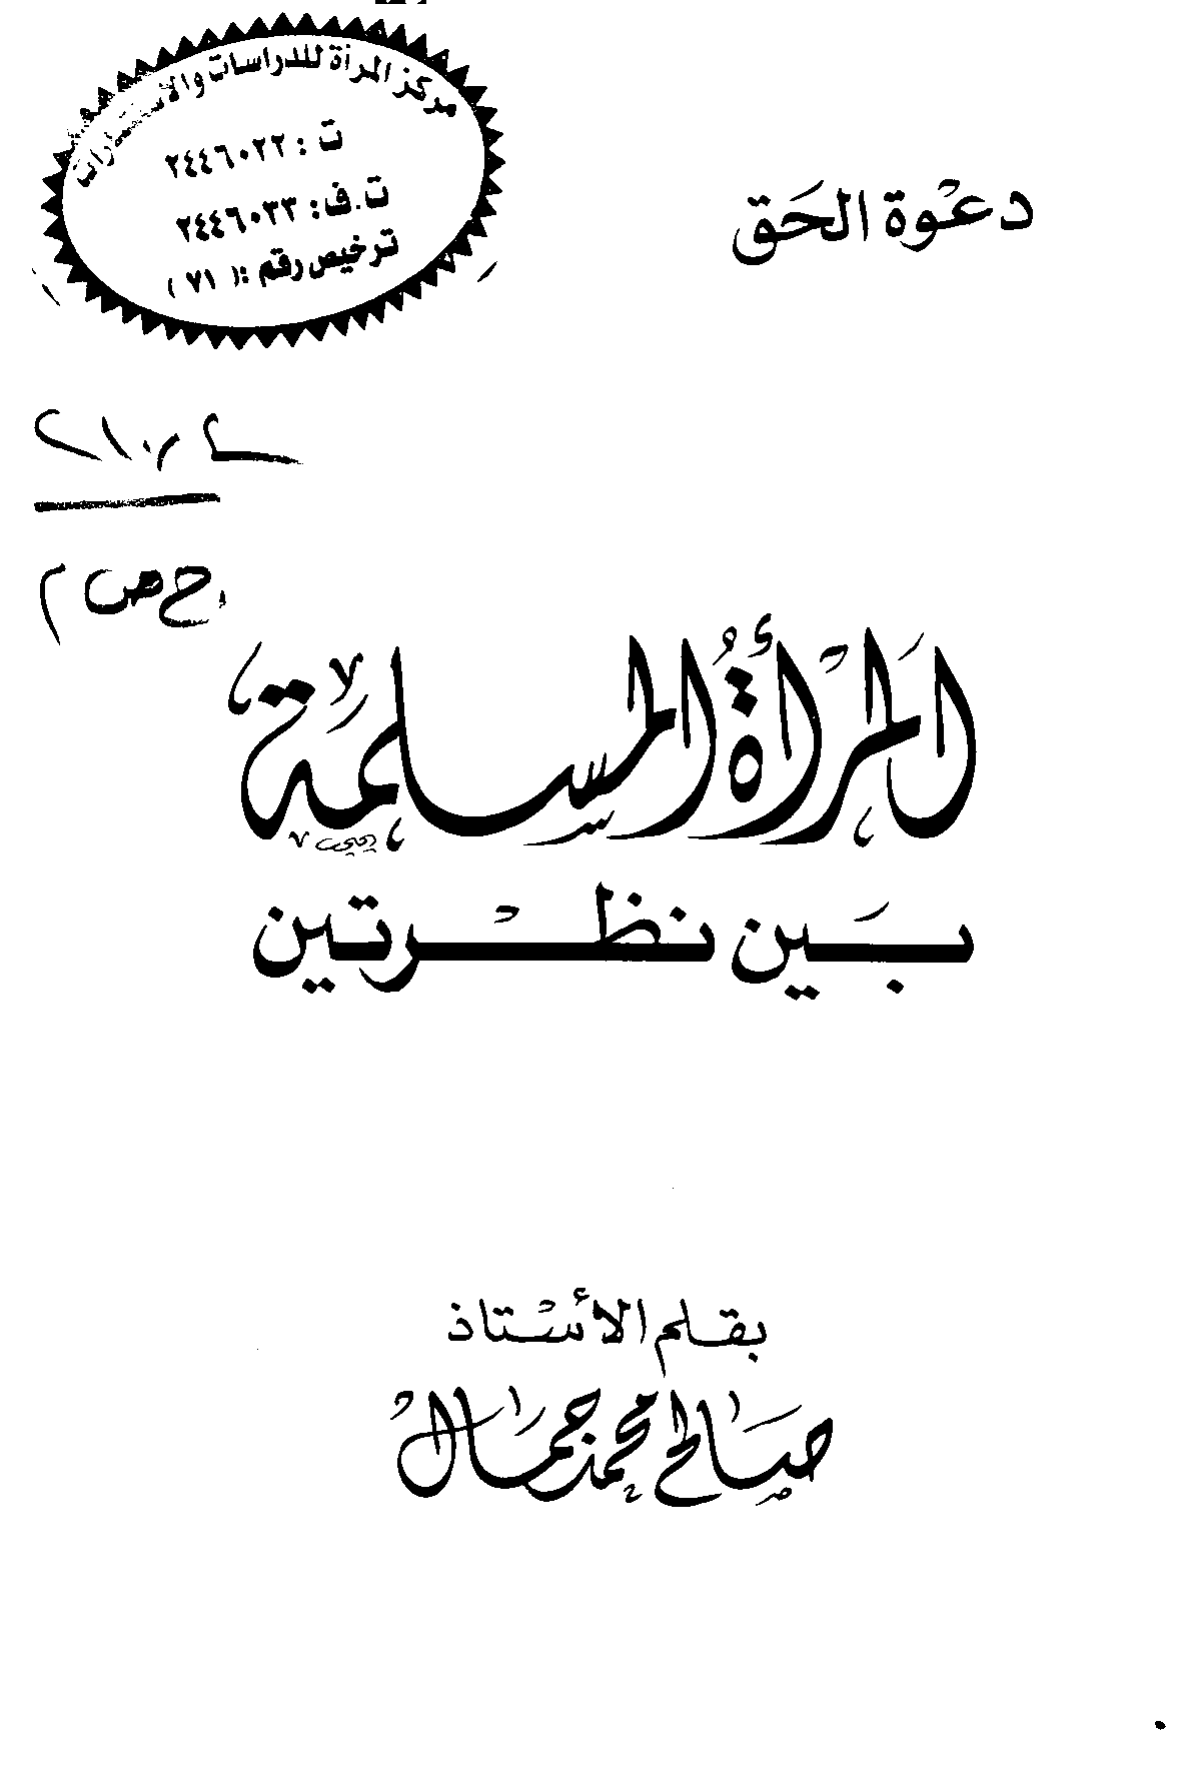 مركز المرأة للدراسات والاستشارات
ت : ٢٤٤٦٠٢٢
ت.ف: ٢٤٤٦٠٣٣
ترخيص رقم :( ٧١ )
دعْوة الحَق
ح ص م
المرْأةُ المسلِمَة
بَين نظْرتين
بقلم الأسْتاذ
صَالح محمد جمال